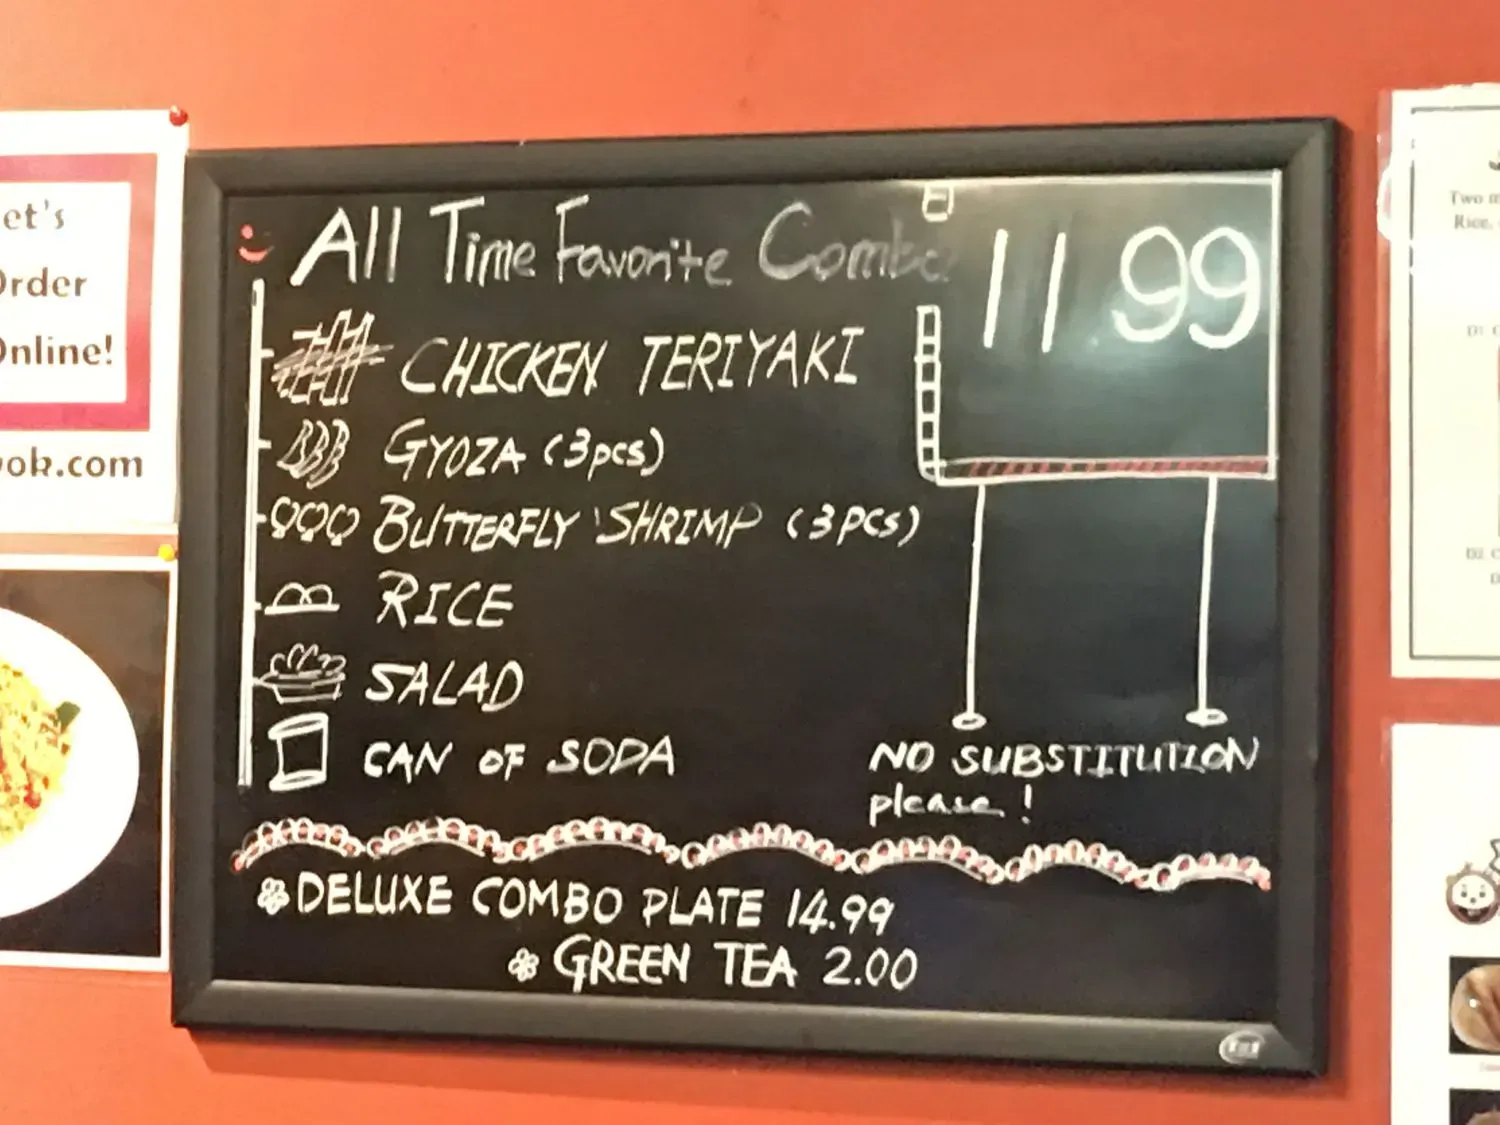 et's
Order
Online!
ok.com
All Time Favorite Combo
11 99
CHICKEN TERIYAKI
GYOZA (3pcs)
BUTTERFLY SHRIMP (3PCS)
RICE
SALAD
CAN OF SODA
NO SUBSTITUTION
please!
DELUXE COMBO PLATE 14.99
GREEN TEA 2.00
Two
Rice,